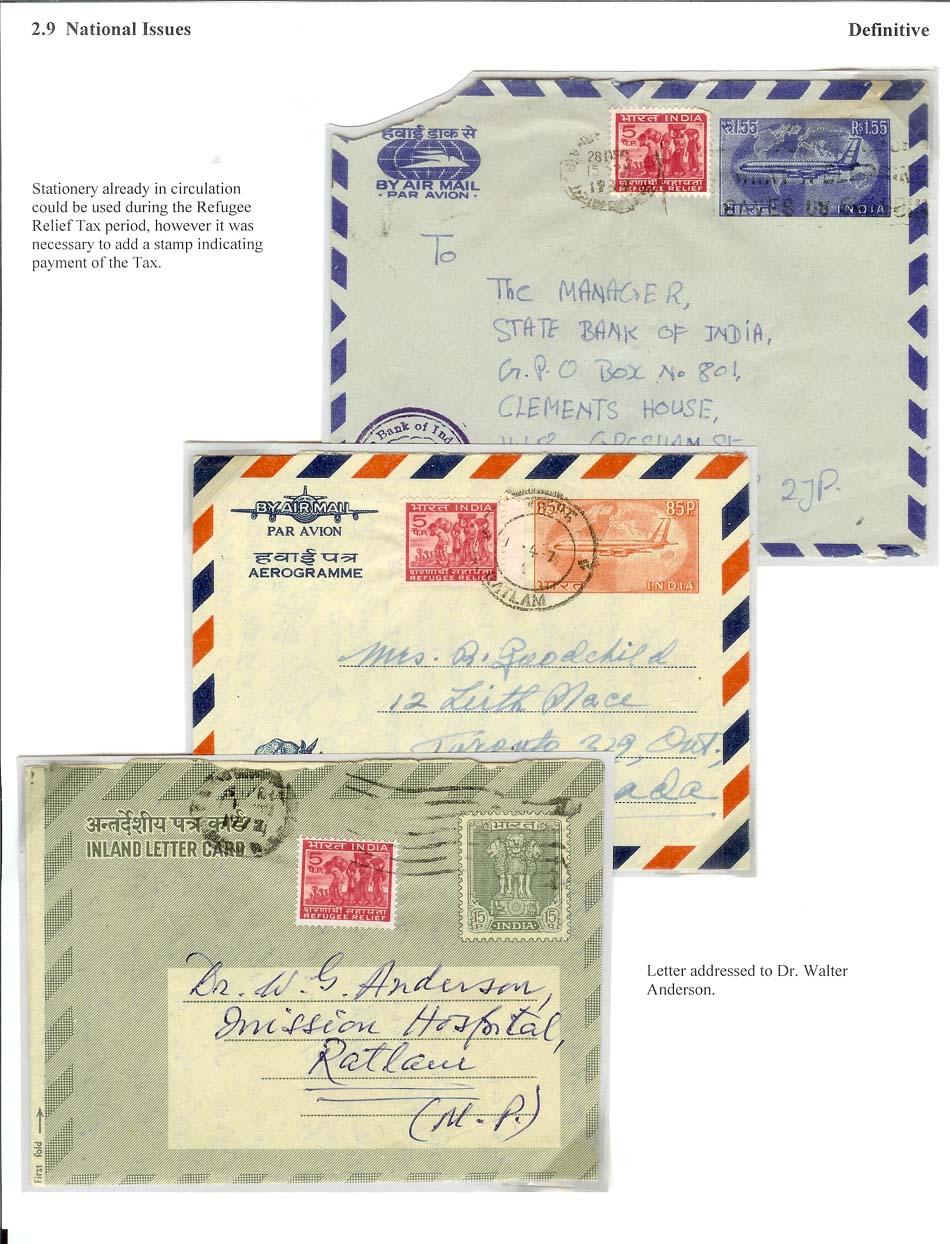 2.9 National Issues
Definitive
Stationery already in circulation
could be used during the Refugee
Relief Tax period, however it was
necessary to add a stamp indicating
payment of the Tax.
हवाई डाक से
BY AIR MAIL
PAR AVION
28 DEC
भारत INDIA
5 पै.P.
शरणार्थी सहायता
REFUGEE RELIEF
रु1.55
Rs1.55
भारत INDIA
To
The MANAGER,
STATE BANK OF INDIA,
G.P.O BOX No 801,
CLEMENTS HOUSE,
GRESHAM ST
2JP.
Bank of Ind
BY AIR MAIL
PAR AVION
हवाई पत्र
AEROGRAMME
भारत INDIA
5 पै.P.
शरणार्थी सहायता
REFUGEE RELIEF
RATLAM
85P
भारत INDIA
Mrs. B. Goodchild
12 Leith Place
Toronto 329, Ont.
अन्तर्देशीय पत्र कार्ड
INLAND LETTER CARD
भारत INDIA
5 पै.P.
शरणार्थी सहायता
REFUGEE RELIEF
भारत
15
15
INDIA
Dr. W. G. Anderson,
Mission Hospital,
Ratlam
(M.P.)
First fold
Letter addressed to Dr. Walter
Anderson.